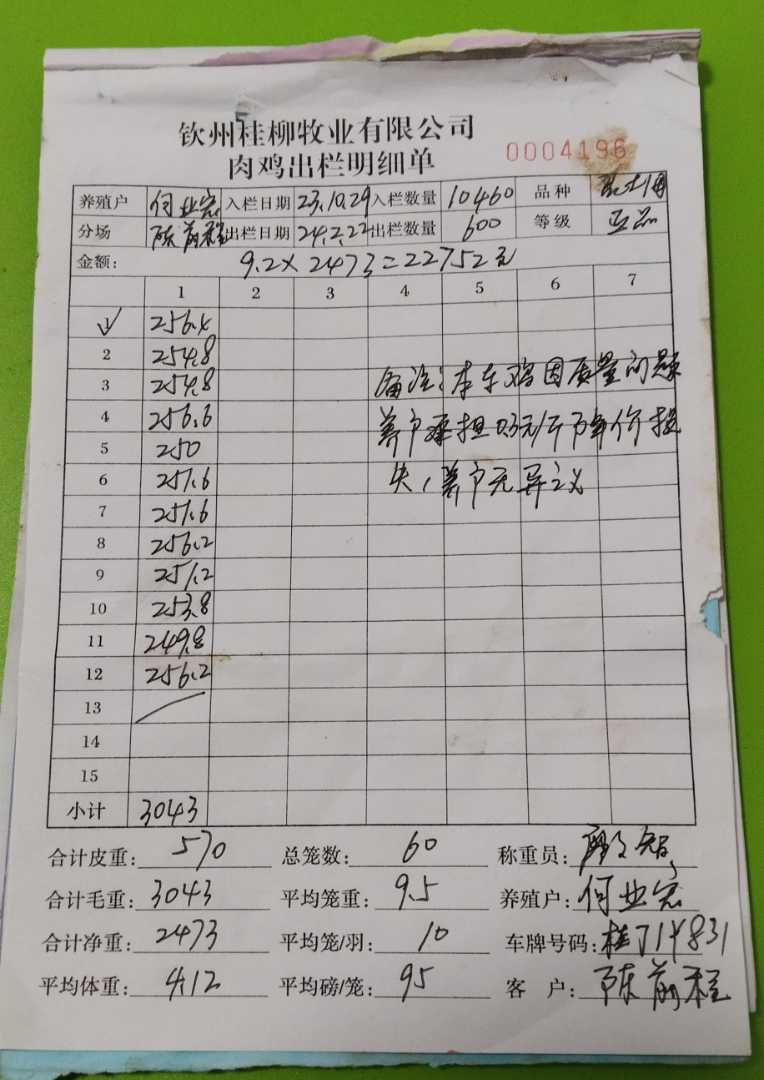 钦州桂柳牧业有限公司
肉鸡出栏明细单
0004196
养殖户 何业宏 入栏日期 23.10.29 入栏数量 10460 品种
分场 陈前程 出栏日期 24.2.22 出栏数量 600 等级 正品
金额: 9.2×2473=22752元
1 2 3 4 5 6 7
1 256.4
2 254.8
3 254.8
4 256.6
5 250
6 251.6
7 251.6
8 256.2
9 251.2
10 253.8
11 249.8
12 256.2
13
14
15
备注:本车鸡因质量问题
养户承担0.3元/斤降价损
失,养户无异议
小计 3043
合计皮重: 570 总笼数: 60 称重员:
合计毛重: 3043 平均笼重: 9.5 养殖户: 何业宏
合计净重: 2473 平均笼/羽: 10 车牌号码: 桂J14831
平均体重: 4.12 平均磅/笼: 95 客户: 陈前程